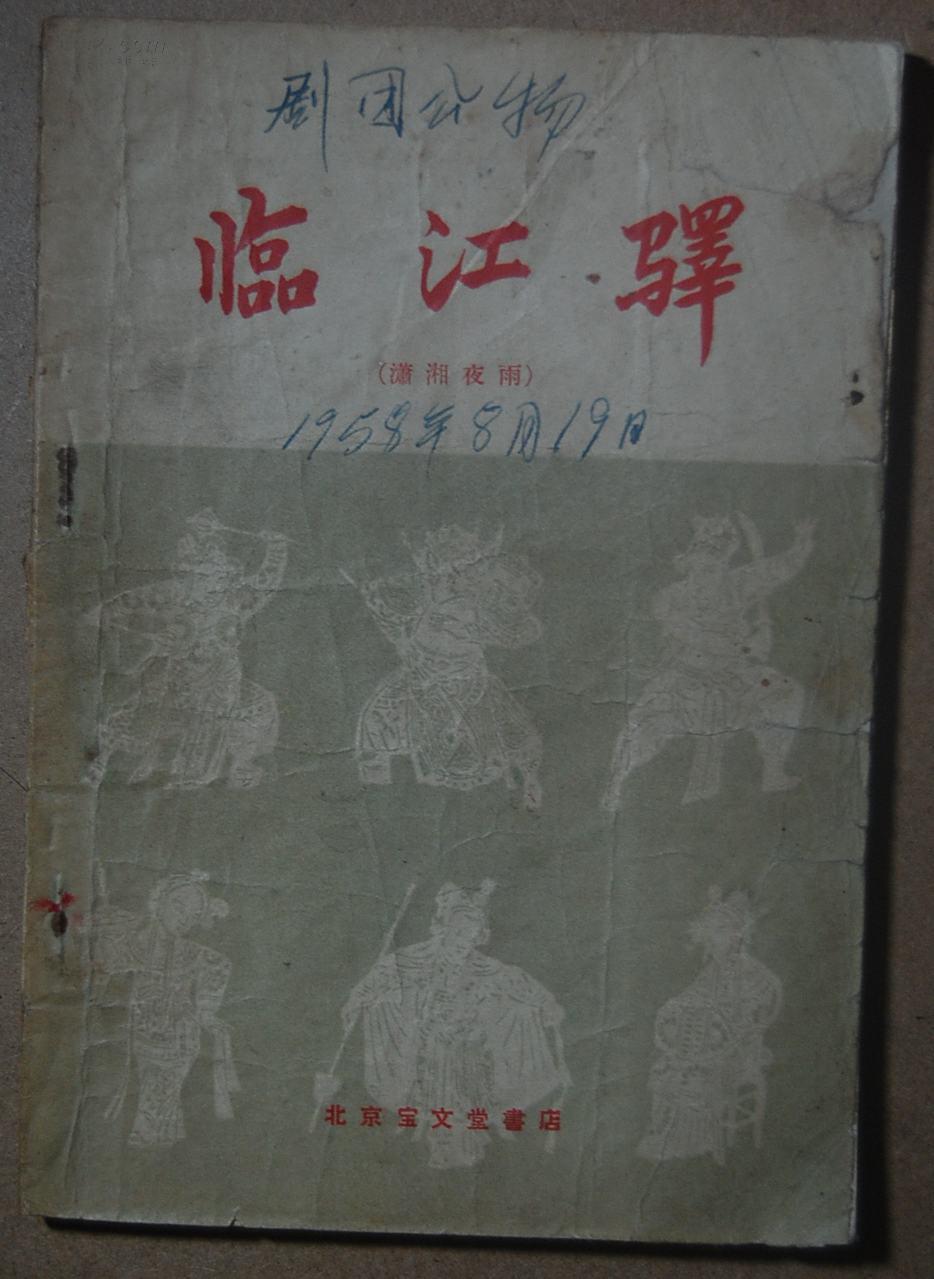 剧团公物
临江驿
(潇湘夜雨)
1958年8月19日
北京宝文堂書店